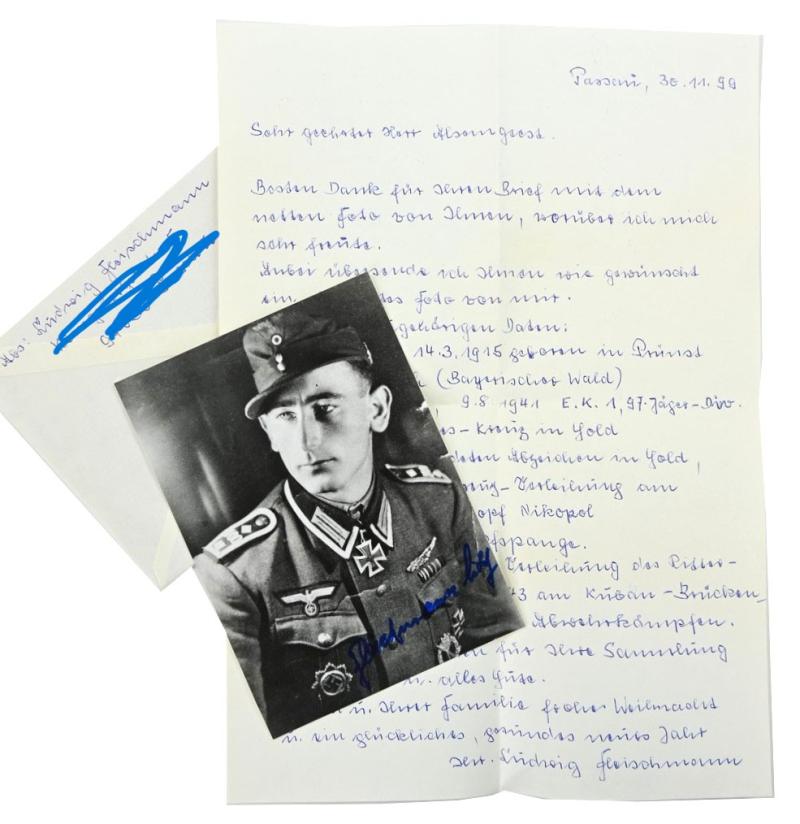 Passau, 30.11.99
Sehr geehrter Herr
Besten Dank für Ihren Brief mit dem
netten Foto von Ihnen, worüber ich mich
sehr freute.
Anbei übersende ich Ihnen wie gewünscht
ein des Foto von mir.
gehörigen Daten:
14.3.1915 geboren in Prünst
(Bayerischer Wald)
9.8.1941 E.K. 1, 97. Jäger-Div.
es-Kreuz in Gold
deten Abzeichen in Gold,
reuz-Verleihung am
opf Nikopol
fspange.
Verleihung des Ritter-
43 am Kuban-Brücken-
Abwehrkämpfen.
für Ihre Sammlung
u. alles Gute.
u. Ihrer Familie frohe Weihnacht
u. ein glückliches, gesundes neues Jahr
Ludwig Fleischmann
Abs: Ludwig Fleischmann
Fleischmann Ldg